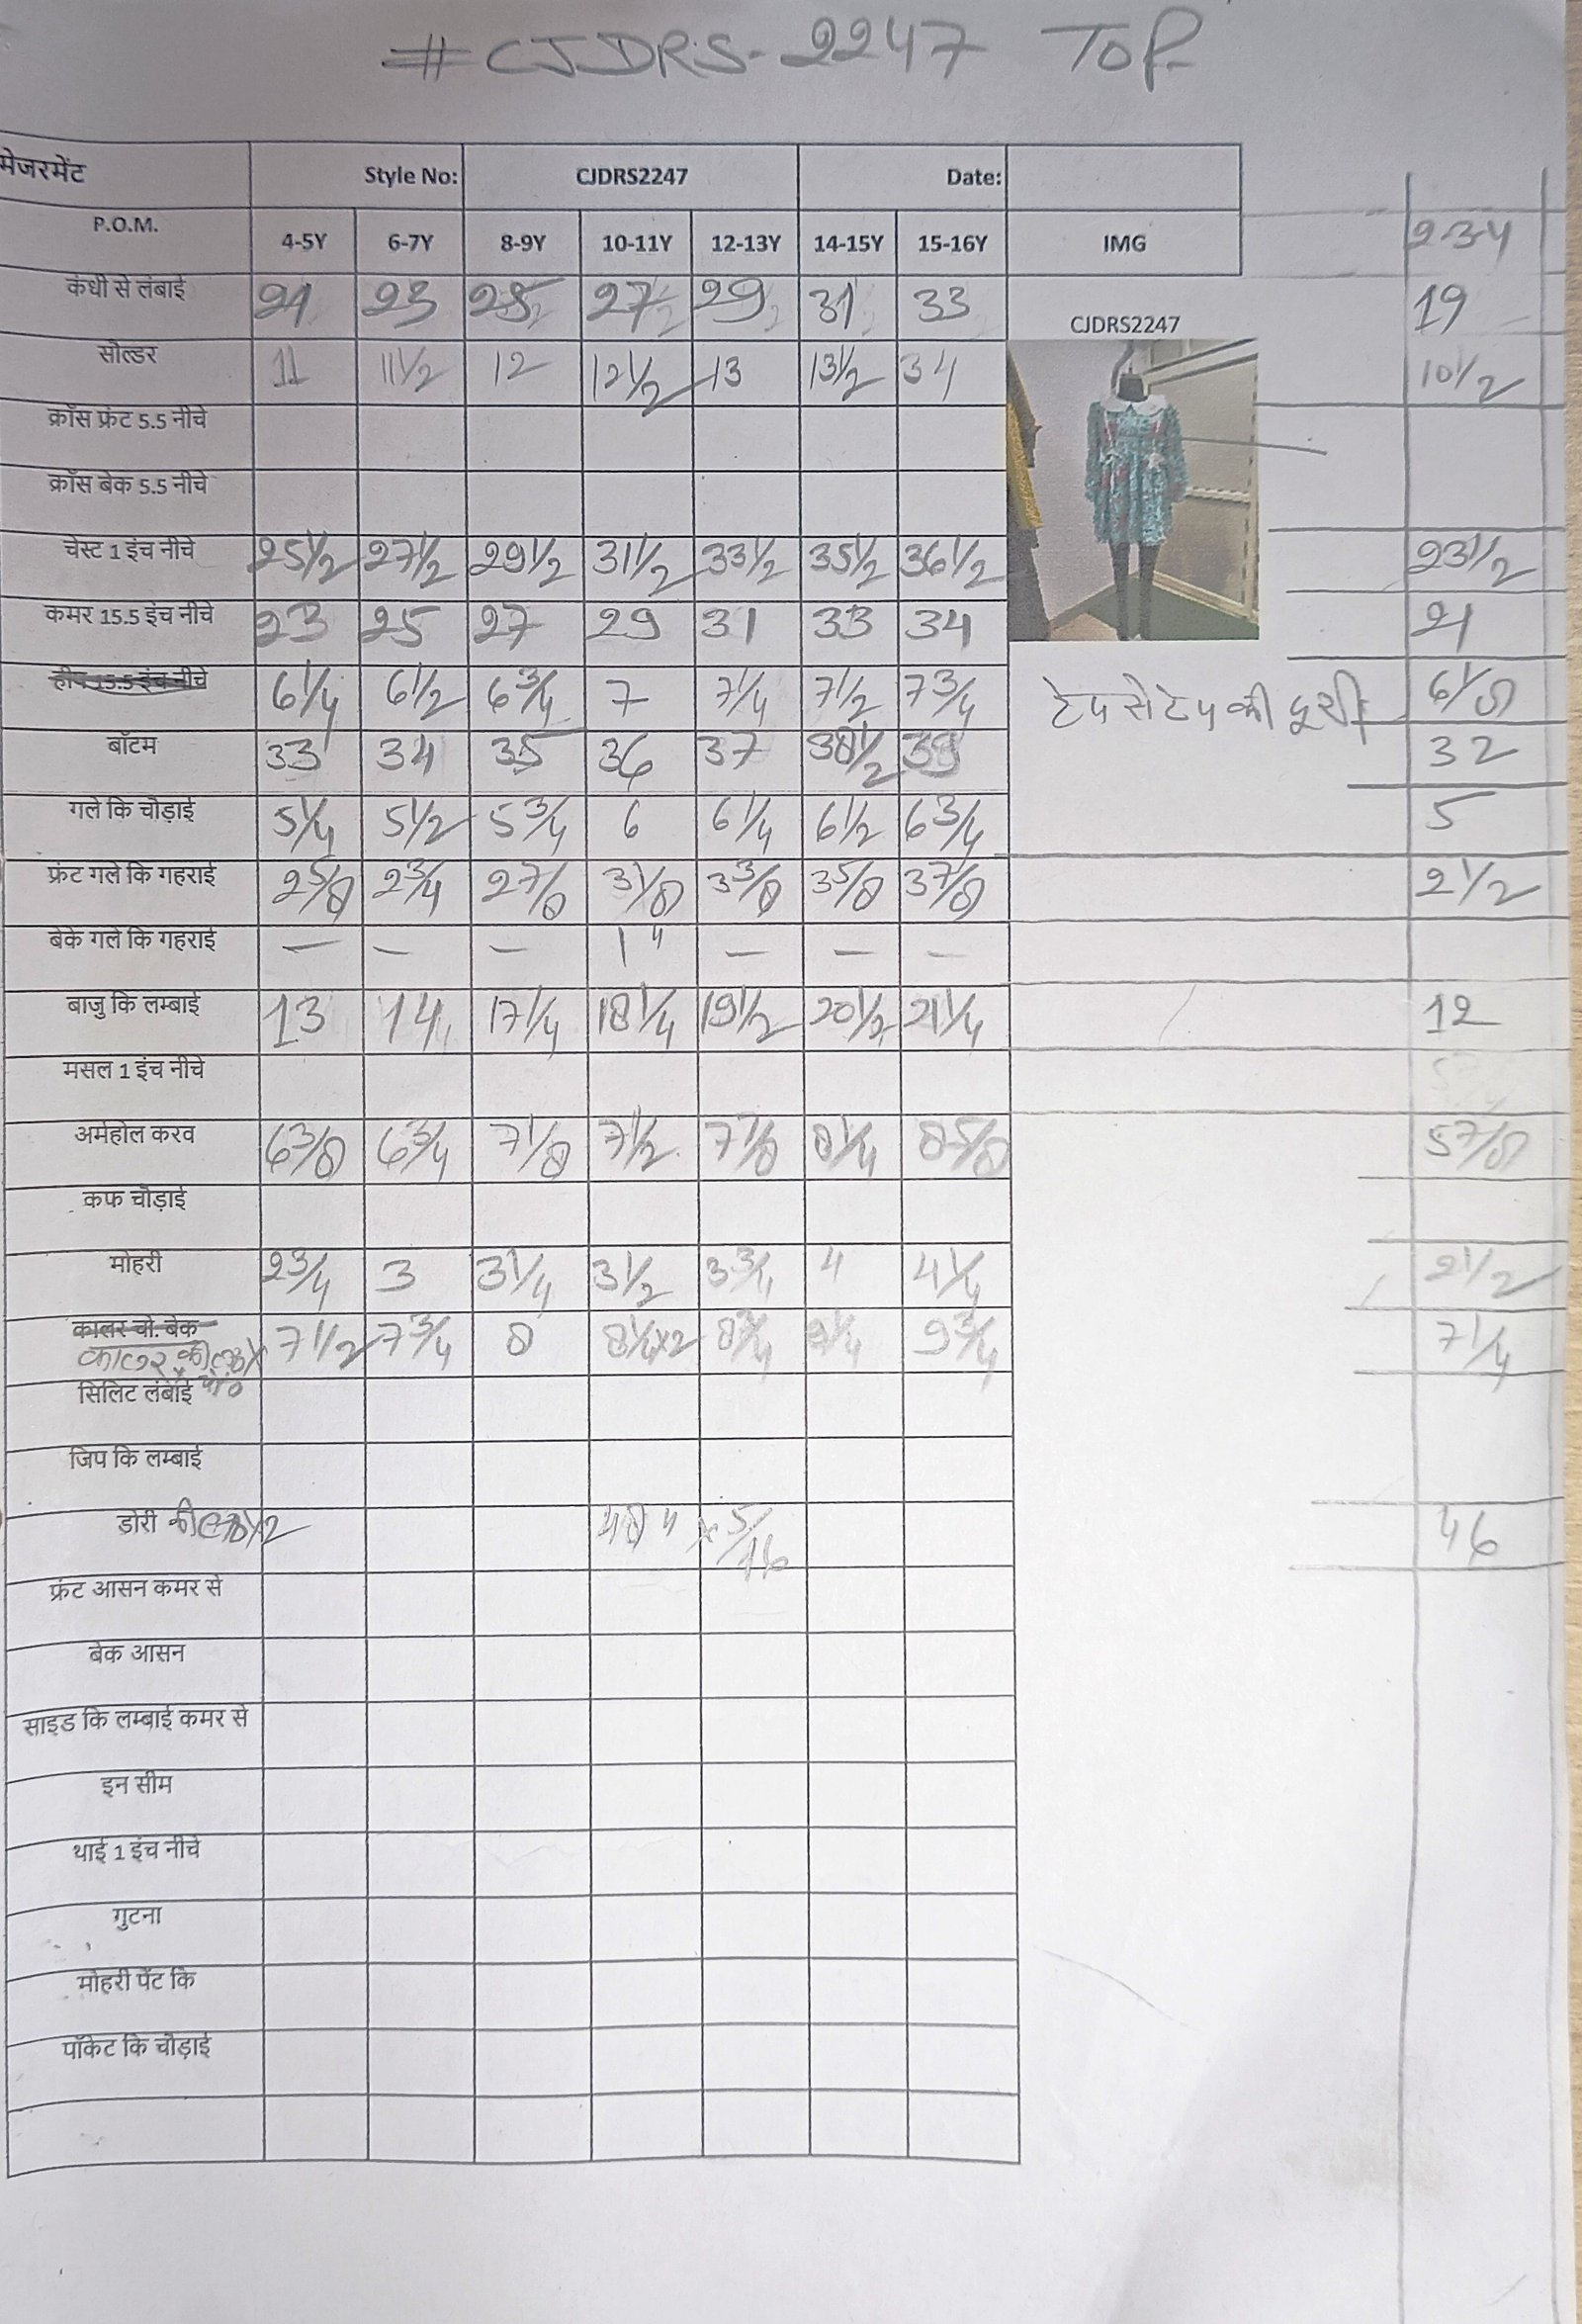 #CJDRS-2247 TOP
मेजरमेंट Style No: CJDRS2247 Date:
P.O.M. 4-5Y 6-7Y 8-9Y 10-11Y 12-13Y 14-15Y 15-16Y IMG 2-3-4
कंधी से लंबाई 21 23 25 27 29 31 33 19
CJDRS2247
सोल्डर 11 11 1/2 12 12 1/2 13 13 1/2 34 10 1/2
क्रॉस फ्रंट 5.5 नीचे
क्रॉस बेक 5.5 नीचे
चेस्ट 1 इंच नीचे 25 1/2 27 1/2 29 1/2 31 1/2 33 1/2 35 1/2 36 1/2 23 1/2
कमर 15.5 इंच नीचे 23 25 27 29 31 33 34 21
हीप 15.5 इंच नीचे 6 1/4 6 1/2 6 3/4 7 7 1/4 7 1/2 7 3/4 टेप से टेप की दूरी 6 1/8
बॉटम 33 34 35 36 37 38 1/2 39 32
गले कि चोड़ाई 5 1/4 5 1/2 5 3/4 6 6 1/4 6 1/2 6 3/4 5
फ्रंट गले कि गहराई 2 5/8 2 3/4 2 7/8 3 1/8 3 3/8 3 5/8 3 7/8 2 1/2
बेके गले कि गहराई — — — 1" — — —
बाजु कि लम्बाई 13 14 17 1/4 18 1/4 19 1/2 20 1/2 21 1/4 12
मसल 1 इंच नीचे
अर्महोल करव 6 3/8 6 3/4 7 1/8 7 1/2 7 7/8 8 1/4 8 5/8 5 7/8
कफ चोड़ाई
मोहरी 2 3/4 3 3 1/4 3 1/2 3 3/4 4 4 1/4 2 1/2
कालर चो. बेक 7 1/2 7 3/4 8 8 1/4 x2 8 3/4 9 1/4 9 3/4 7 1/4
कालर की
सिलिट लंबाई
जिप कि लम्बाई
डोरी की 48" x 5/16 46
फ्रंट आसन कमर से
बेक आसन
साइड कि लम्बाई कमर से
इन सीम
थाई 1 इंच नीचे
गुटना
मोहरी पेंट कि
पॉकेट कि चोड़ाई